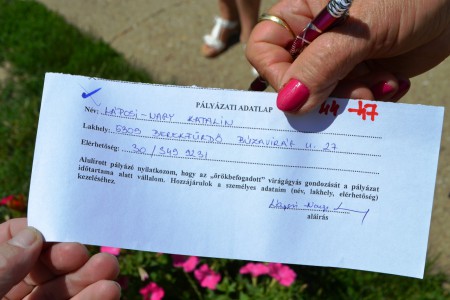 PÁLYÁZATI ADATLAP
44-47
Név: LÁPOSI-NAGY KATALIN
Lakhely: 5309 BEREKFÜRDŐ BÚZAVIRÁG U. 27
Elérhetőség: 30/349 9231
Alulírott pályázó nyilatkozom, hogy az "örökbefogadott" virágágyás gondozását a pályázat
időtartama alatt vállalom. Hozzájárulok a személyes adataim (név, lakhely, elérhetőség)
kezeléséhez.
aláírás